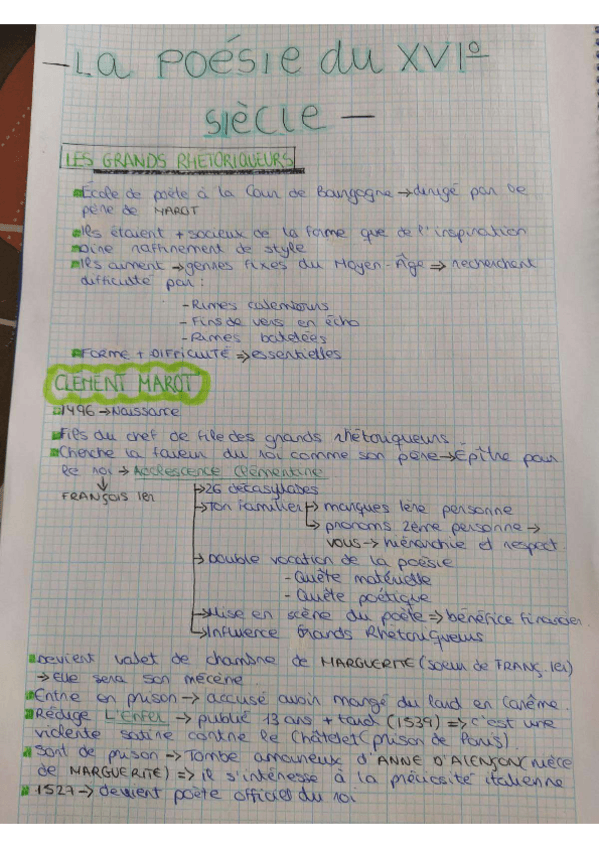 - LA POÉSIE DU XVIº
SIÈCLE -
LES GRANDS RHÉTORIQUEURS
École de poète à la Cour de Bourgogne → dirigé par le
père de MAROT
Ils étaient + soucieux de la forme que de l'inspiration
raffinement de style
Ils aiment → genres fixes du Moyen-Âge ⇒ recherchent
difficulté par :
- Rimes
- Fins de vers en écho
- Rimes batelées
FORME + DIFFICULTÉ ⇒ essentielles
CLÉMENT MAROT
1496 → Naissance
Fils du chef de file des grands rhétoriqueurs.
Cherche la faveur du roi comme son père → Épître pour
le roi → Adolescence Clémentine
FRANÇOIS 1er
→ 26 décasyllabes
→ Ton Familier → marques 1ère personne
→ pronoms 2ème personne →
vous → hiérarchie et respect.
→ Double vocation de la poésie
- Quête matérielle
- Quête poétique
→ Mise en scène du poète ⇒ bénéfice financier
→ Influence Grands Rhétoriqueurs
Devient valet de chambre de MARGUERITE (soeur de FRANÇ. 1er)
→ Elle sera son mécène.
Entre en prison → accusé avoir mangé du lard en Carême.
Rédige L'Enfer → publié 13 ans + tard (1539) ⇒ c'est une
violente satire contre le Châtelet (prison de Paris).
Sort de prison → Tombe amoureux d'ANNE D'ALENÇON (nièce
de MARGUERITE) ⇒ il s'intéresse à la préciosité italienne
1527 → devient poète officiel du roi